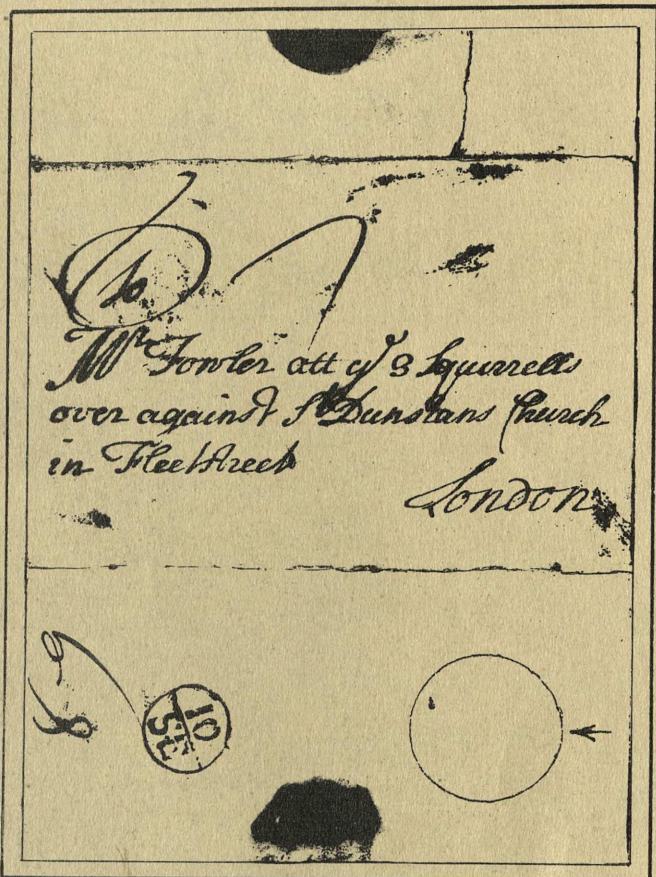 To
Mr Fowler att ye 3 Squirrells
over against St Dunstans Church
in Fleetstreet
London
10
SE